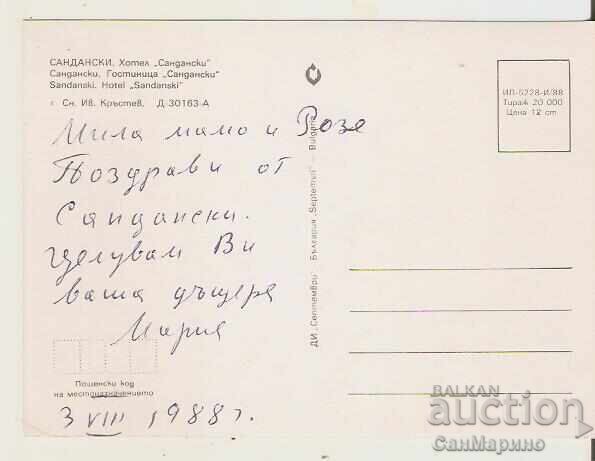 САНДАНСКИ. Хотел „Сандански"
Сандански. Гостиница „Сандански"
Sandanski. Hotel „Sandanski"
г Сн. Ив. Кръстев. Д-30163-А
Мила мамо и Розе
Поздрави от
Сандански.
Целувам Ви
ваша дъщеря
Мария
Пощенски код
на местоназначението
3 VIII 1988 г.
ДИ „Септември" България „Septemvri" — Bulgaria
ИЛ-5228-И/88
Тираж 20 000
Цена 12 ст
BALKAN
auction
СанМарино